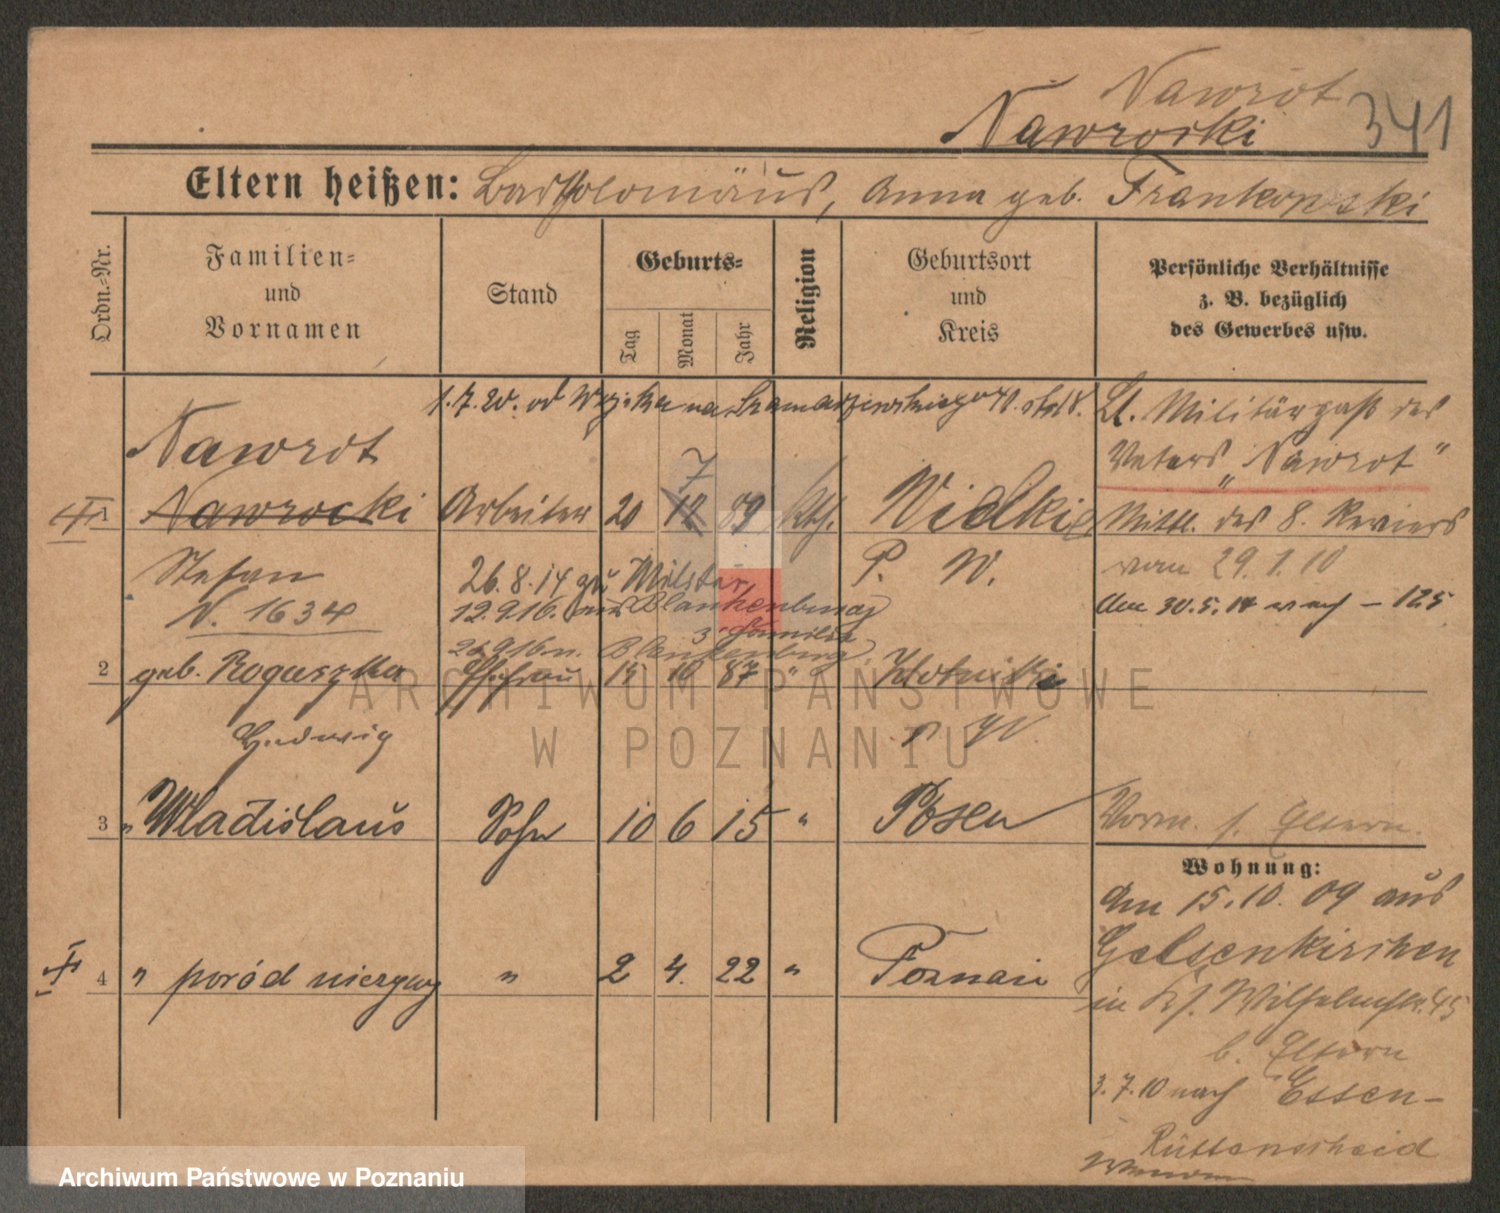 Nawrot
Nawrocki 341
Eltern heißen: Bartholomäus, Anna geb. Frankowski
Ordn.-Nr.
Familien-
und
Vornamen
Stand
Geburts-
Tag
Monat
Jahr
Religion
Geburtsort
und
Kreis
Persönliche Verhältnisse
z. B. bezüglich
des Gewerbes usw.
1.7.20. od Wojska na Szamarzewskiego
Lt. Militärpaß des
Nawrot
Vaters „Nawrot“
7
1 Nawrocki Arbeiter 20 12 89 kth. Wielkie
Mittl. des 8. Reviers
Stefan 26.8.14 zu Militär P. W.
vom 29.1.10
N. 1634 12.9.16. aus Blankenburg
Am 30.5.14 nach – 125
z. Familie
Blankenburg
2 geb. Roguszka Ehefrau 15 10 87 " Zlotniki
Hedwig P. W.
3 " Wladislaus Sohn 10 6 15 " Posen
Vorm. s. Eltern.
Wohnung:
Am 15.10.09 aus
Gelsenkirchen
4 " poród nieżywy " 2 4. 22 " Poznań
in Wilhelmstr. 45
b. Eltern
3.7.10 nach Essen-
Rüttenscheid
ARCHIWUM PAŃSTWOWE
W POZNANIU
Archiwum Państwowe w Poznaniu